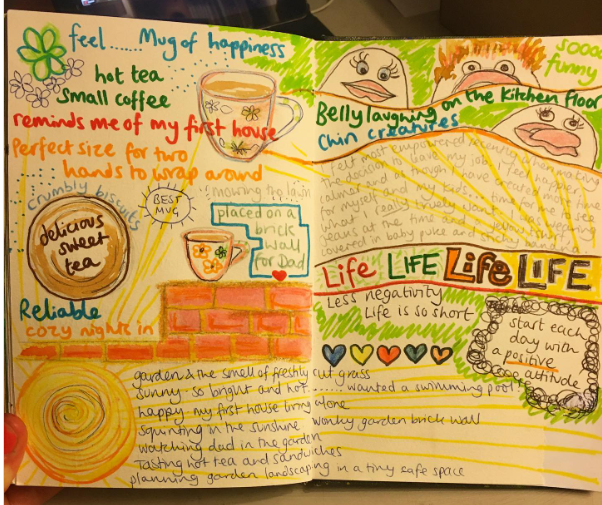 feel...... Mug of happiness
hot tea
Small coffee
reminds me of my first house
Perfect size for two
hands to wrap around
crumbly biscuits
BEST
MUG
mowing the lawn
placed on a
brick
wall
for Dad
delicious
sweet
tea
Reliable
cozy nights in
garden & the smell of freshly cut grass
sunny - so bright and hot ...... wanted a swimming pool
happy my first house living alone
squinting in the sunshine wonky garden brick wall
watching dad in the garden
Tasting hot tea and sandwiches
planning garden landscaping in a tiny safe space
sooo
funny
Belly laughing on the kitchen floor
Chin creatures
I felt most empowered recently when making
the decision to leave my job. I feel happier
calmer and as though I have created more time
for myself and my kids. time for me to see
what I really truely want. I was wearing
jeans at the time and
covered in baby puke and
Life LIFE Life LIFE
Less negativity
Life is so short
start each
day with
a positive
attitude